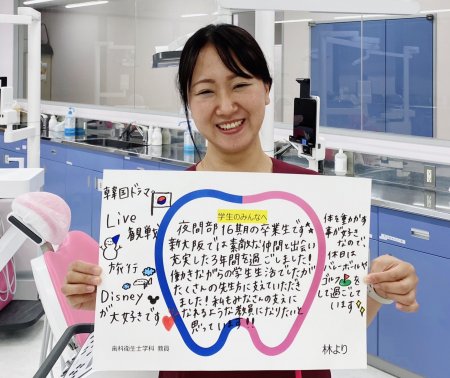 学生のみんなへ
夜間部16期の卒業生です☆
新大阪では素敵な仲間と出会い
充実した3年間を過ごしました!
働きながらの学生生活でしたが
たくさんの先生方に支えていただき
ました!私もみなさんの支えに
なれるような教員になりたいと
思っています!!
韓国ドラマ
Live
観戦
旅行
Disney
が
大好きです
体を動かす
事が好き
なので
休日は
バレーボールや
ゴルフ
をして過ごして
います
歯科衛生士学科 教員
林より